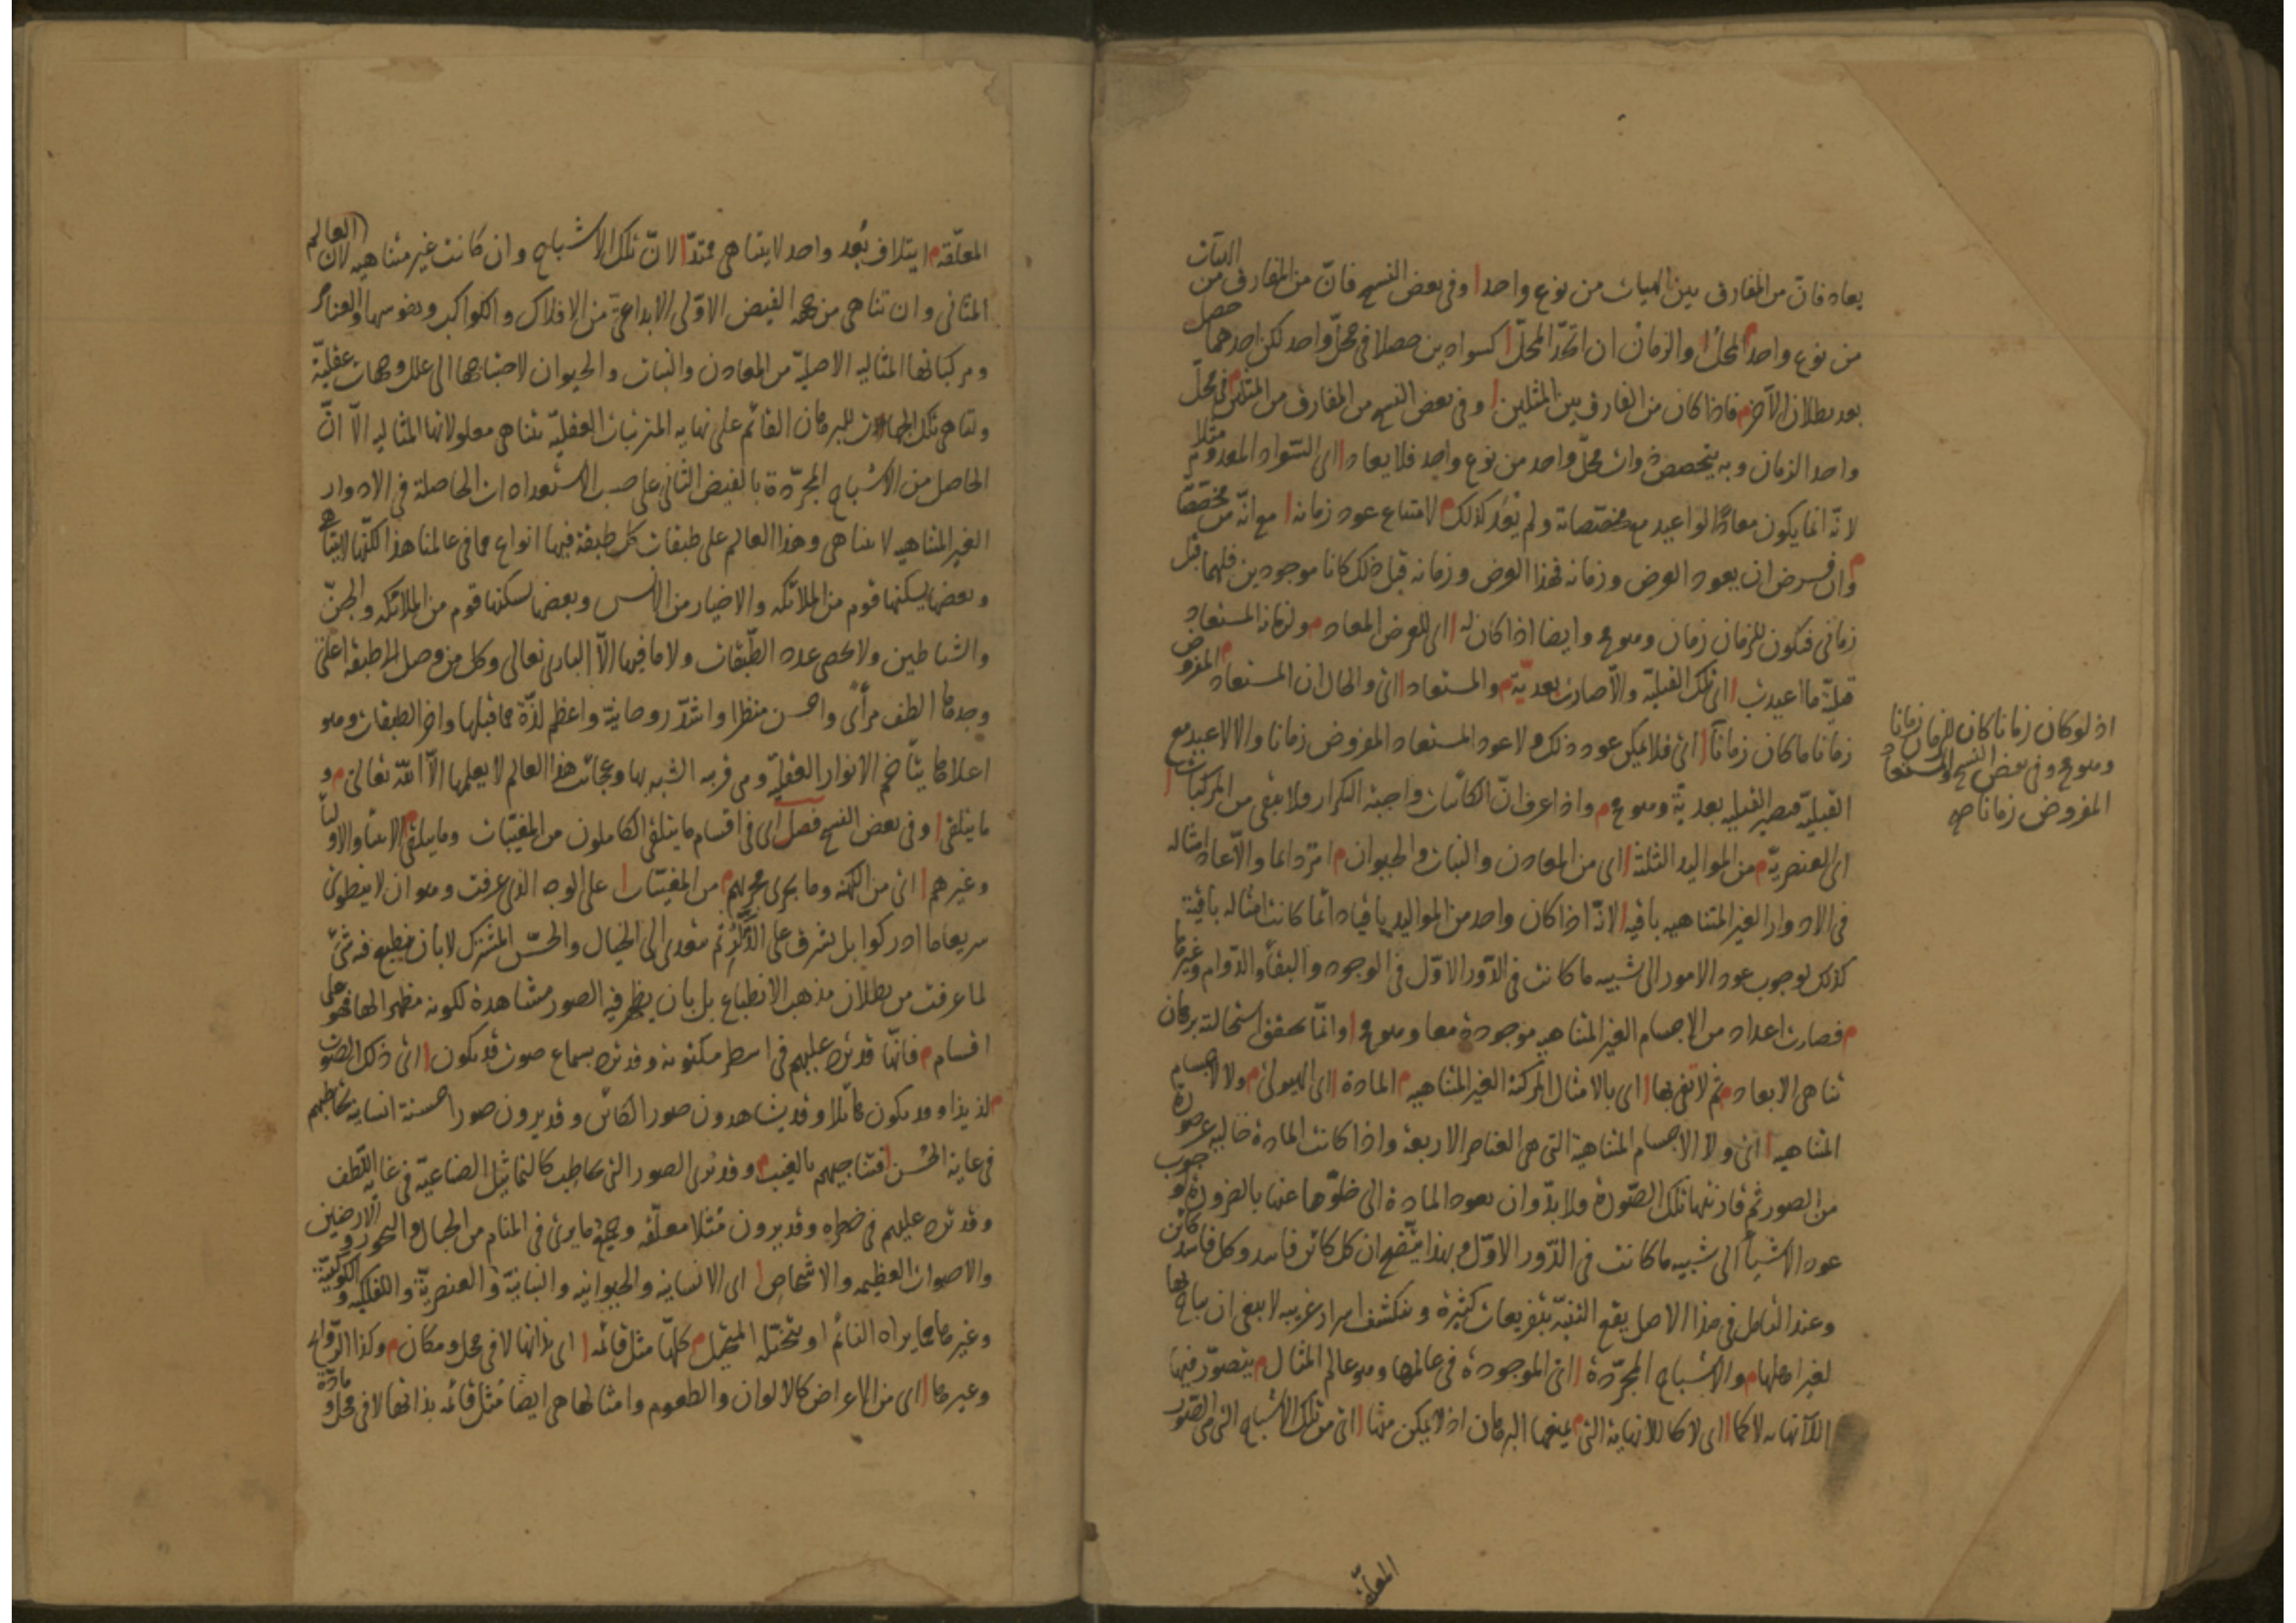 يعاد فانّ من المفارق بين الهيات من نوع واحد ا وفى بعض النسخ فانّ من المفارق من الهيآت
من نوع واحد م المحل ا والزمان ان اتّحد المحلّ ا كسوادين حصلا فى محلّ واحد لكن احدهما حصل
بعد بطلان الآخر م فاذا كان من الفارق بين المثلين ا وفى بعض النسخ من المفارق من المثلين م فى محلّ
واحد الزمان وبه يتخصص ذوات محلّ واحد من نوع واحد فلا يعاد ا اى السّواد المعدوم مثلا
لانّه انما يكون معادًا لو اعيد مع مخصّصاته ولم يعُد كذلك م لامتناع عود زمانه ا مع انّه من مخصّصاته
م وان فرض ان يعود العرض وزمانه فهذا العرض وزمانه قبل ذلك كانا موجودين فلهما قبل
زمانى فيكون للزمان زمان وهو مح وايضا اذا كان له ا اى للعرض المعاد م ولزمانه المستعاد
قبليّة ما اعيدت ا اى تلك القبليّة والّا صارت بعديّة م والمستعاد ا اى والحال ان المستعاد م المفروض
زمانا ما كان زمانآ ا اى فلا يمكن عود ذلك ولا عود المستعاد المفروض زمانا والا لاعيد مع
القبليّة فيصير القبليه بعديّة وهو مح م واذ اعرف انّ الكائنات واجبة التكرار فلا يبقى من المركبات ا
اى العنصريّة م من المواليد الثلثة ا اى من المعادن والنبات والحيوان م امر دائما والّا عاد امثاله
فى الادوار الغير المتناهيه باقيه ا لانّه اذا كان واحد من المواليد باقيا دائما كانت امثاله باقية
كذلك لوجوب عود الامور الى شبيه ما كانت فى الدّور الاوّل فى الوجود والبقاء والدّوام وغيرها
م فصارت اعداد من الاجسام الغير المتناهيه موجودة معا وهو مح ا وانّما تحقق استحالته برهان
تناهى الابعاد م ثم لا تفى بها ا اى بالامثال المركبة الغير المتناهيه م المادة ا اى الهيولى م ولا الاجسام
المتناهيه ا اى ولا الاجسام المتناهية التى هى العناصر الاربعة واذا كانت المادة خاليه عن صورة
من الصور ثم قارنتها تلك الصّورة ولا بدّ وان تعود المادة الى خلوّها عنها بالضرورة لوجوب
عود الاشياء الى شبيه ما كانت فى الدّور الاوّل وبهذا يتّضح ان كل كائن فاسد وكل فاسد كائن
وعند التامل فى هذا الاصل يقع التنبّه بتفريعات كثيرة وينكشف اسرار غريبه لا ينبغى ان يباح بها
لغير اهلها م والاشباح المجرّدة ا اى الموجودة فى عالمها وهو عالم المثال م يتصوّر فيها
اللّانهايه لا كما ا اى لا كاللانهاية التى م يمنعها البرهان اذ لا يمكن منها ا اى من تلك الاشباح التى هى الصّور
المعلّقة
اذ لو كان زمانا كان للزمان زمانا
وهو مح وفى بعض النسخ والمستعاد
المفروض زمانا صح
المعلّقة م ايتلاف بُعد واحد لا يتناهى ممتدّا لانّ تلك الاشباح وان كانت غير متناهيه لان العالم
المثالى وان تناهى من جهة الفيض الاوّلى الابداعىّ من الافلاك والكواكب ونفوسها والعناصر
ومركباتها المثاليه الاصليّه من المعادن والنبات والحيوان لاحتياجها الى علل وجهات عقليّة
وتناهى تلك الجهات للبرهان القائم على نهايه المترتبات العقليّه بتناهى معلولاتها المثاليه الّا انّ
الحاصل من الاشباح المجرّدة بالفيض الثانى على حسب الاستعدادات الحاصلة فى الادوار
الغير المتناهيه لا يتناهى وهذا العالم على طبقات كل طبقة فيها انواع مما فى عالمنا هذا لكنّها لا يتناهى
وبعضها يسكنها قوم من الملائكه والاخيار من الانس وبعضها يسكنها قوم من الملائكه والجنّ
والشياطين ولا يحصى عدد الطّبقات ولا ما فيها الّا البارى تعالى وكل من وصل الى طبقه اعلى
وجدها الطف مرأًى واحسن منظرا واشدّ روحانيّة واعظم لذّة مما قبلها واخر الطبقات وهو
اعلاها يتاخم الانوار العقليّه وهى قريبه الشبه بها وعجائب هذا العالم لا يعلمها الّا اللّه تعالى م و
ما يتلقى ا وفى بعض النسخ فصل اى فى اقسام ما يتلقى الكاملون من المغيّبات وما يتلقى م الانبياء والاولياء
وغيرهم ا اى من الكهنه وما يجرى مجريهم م من المغيّبات ا على الوجه الذى عرفت وهو ان لا ينطوى
سريعا ما ادركوا بل يشرق على الذّكر ثم يتعدى الى الخيال والحسّ المشترك لا بان ينطبع فيه شئ
لما عرفت من بطلان مذهب الانطباع بل بان يظهر فيه الصور مشاهدة لكونه مظهرا لها فهو على
اقسام م فانّها قد ترد عليهم فى اسطر مكتوبة وقد ترد بسماع صوت قد يكون ا اى ذلك الصّوت
م لذيذا وقد يكون هائلا وقد يشاهدون صور الكائن وقد يرون صورا حسنة انسانيه يخاطبهم
فى غاية الحُسن فتناجيهم بالغيب م وقد ترى الصور التى تخاطب كالتماثيل الصناعيّة فى غايه اللّطف
وقد ترد عليهم فى خطره وقد يرون مُثُلا معلّقه وجميع ما يرى فى المنام من الجبال والبحور والارضين
والاصوات العظيمه والاشخاص ا اى الانسانيه والحيوانيه والنباتيّة والعنصريّة والفلكيه والكوكبيّة
وغيرها مما يراه النائم او يتخيّله المتخيل م كلّها مثل قائمه ا اى بذاتها لا فى محل ومكان م وكذا الرّوائح
وغيرها ا اى من الاعراض كالالوان والطعوم وامثالها هى ايضًا مُثُل قائمه بذاتها لا فى محل ومادّة